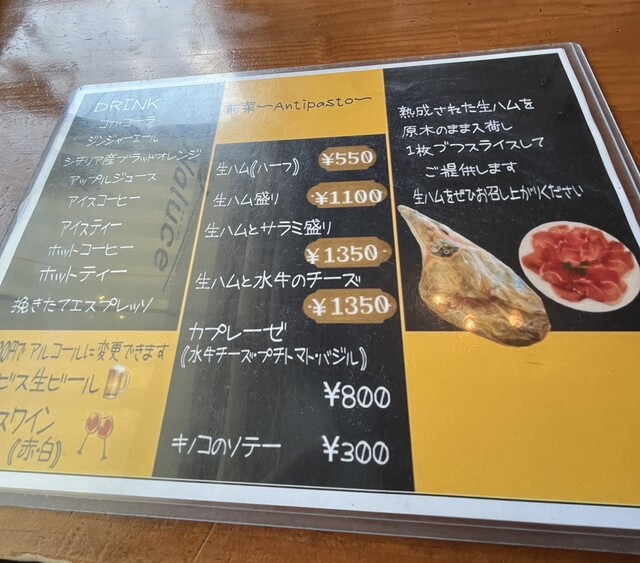 DRINK
コカ・コーラ
ジンジャーエール
シチリア産ブラッドオレンジ
アップルジュース
アイスコーヒー
アイスティー
ホットコーヒー
ホットティー
挽きたてエスプレッソ
アルコールに変更できます
ビス生ビール
スワイン
(赤・白)
前菜〜Antipasto〜
生ハム(ハーフ) ¥550
生ハム盛り ¥1100
生ハムとサラミ盛り
¥1350
生ハムと水牛のチーズ
¥1350
カプレーゼ
(水牛チーズ・プチトマト・バジル)
¥800
キノコのソテー ¥300
熟成された生ハムを
原木のまま入荷し
1枚づつスライスして
ご提供します
生ハムをぜひお召し上がりください